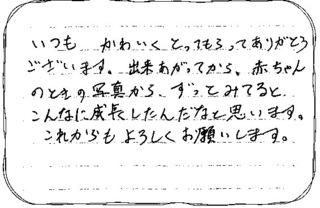 いつも かわいくとってもらってありがとう
ございます。出来あがってから、赤ちゃん
のときの写真から、ずっとみてると
こんなに成長したんだなと思います。
これからもよろしくお願いします。